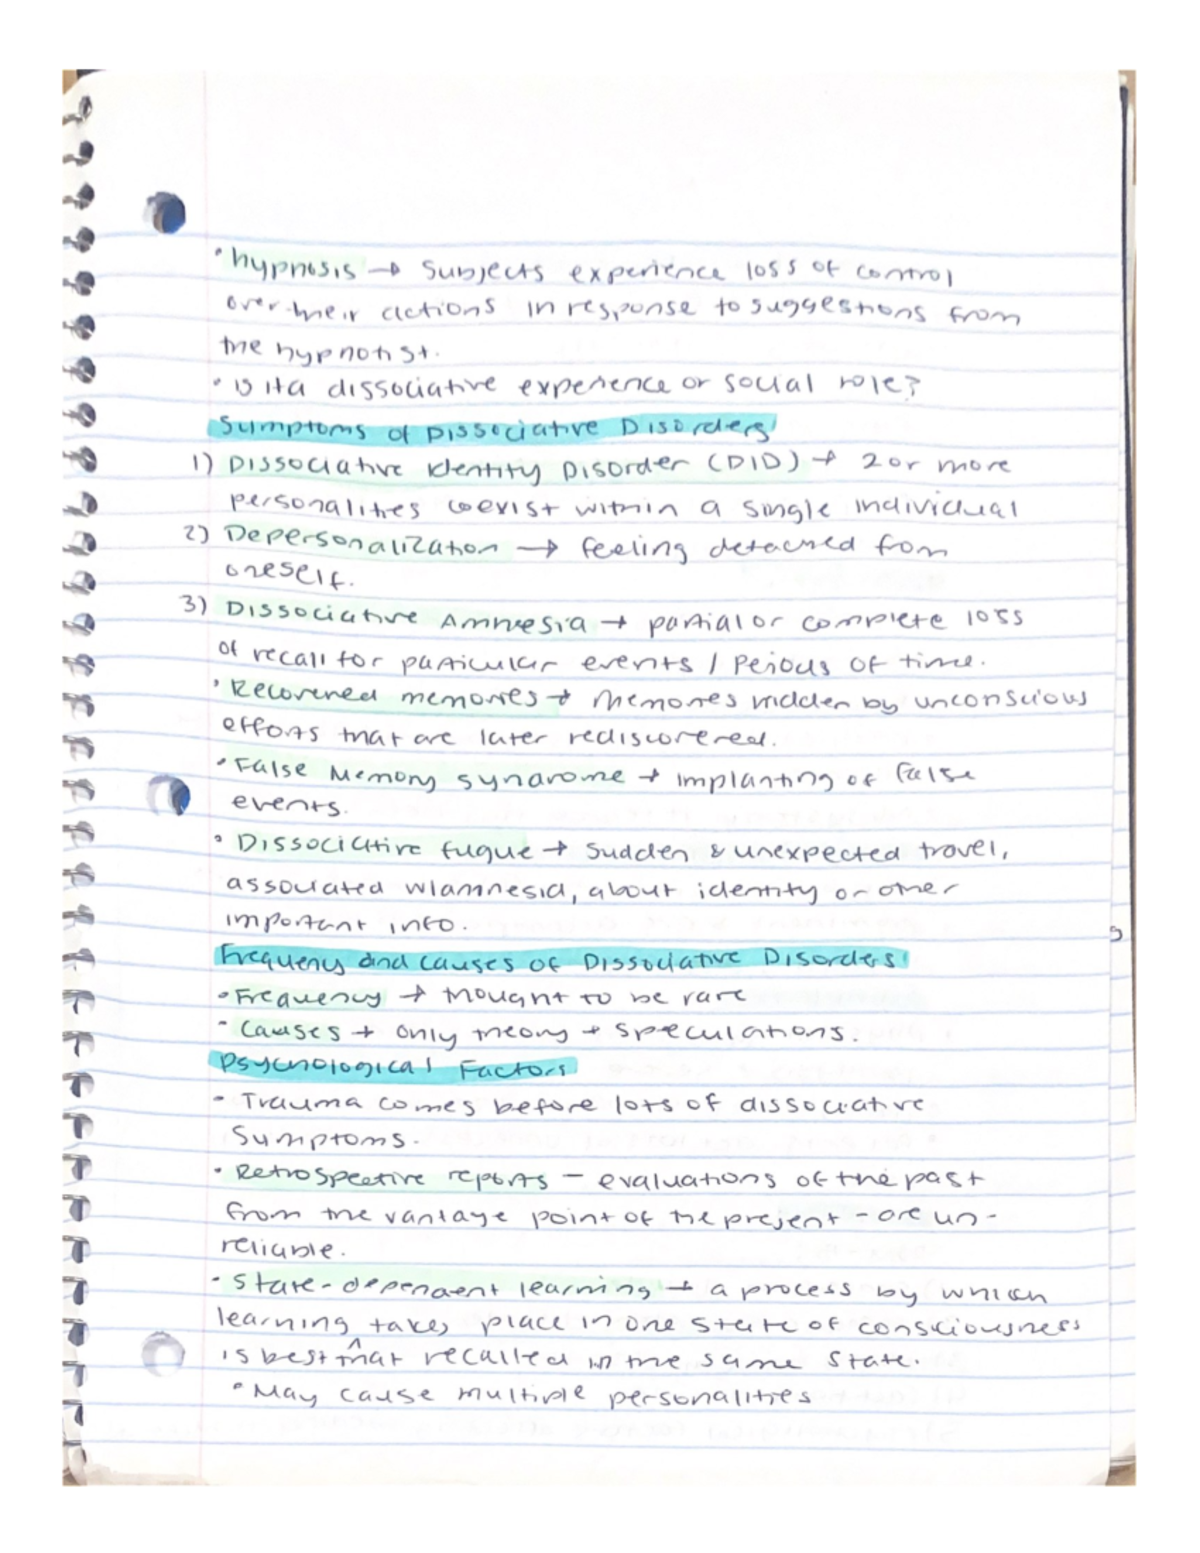 • hypnosis → subjects experience loss of control
over their actions in response to suggestions from
the hypnotist.
• is it a dissociative experience or social role?
Sumptoms of Dissociative Disorders
1) Dissociative Identity Disorder (DID) → 2 or more
personalities coexist within a single individual
2) Depersonalization → feeling detached from
oneself.
3) Dissociative Amnesia → partial or complete loss
of recall for particular events / periods of time.
• Recovered memories → memories hidden by unconscious
efforts that are later rediscovered.
• False Memory syndrome → implanting of false
events.
• Dissociative fugue → sudden & unexpected travel,
associated w/amnesia, about identity or other
important info.
Frequency and causes of Dissociative Disorders
• Frequency → thought to be rare
• Causes → only theory + speculations.
Psychological Factors
• Trauma comes before lots of dissociative
sumptoms.
• Retrospective reports – evaluations of the past
from the vantage point of the present – are un-
reliable.
• State-dependent learning → a process by which
learning takes place in one state of consciousness
is best ^ that recalled in the same state.
• May cause multiple personalities